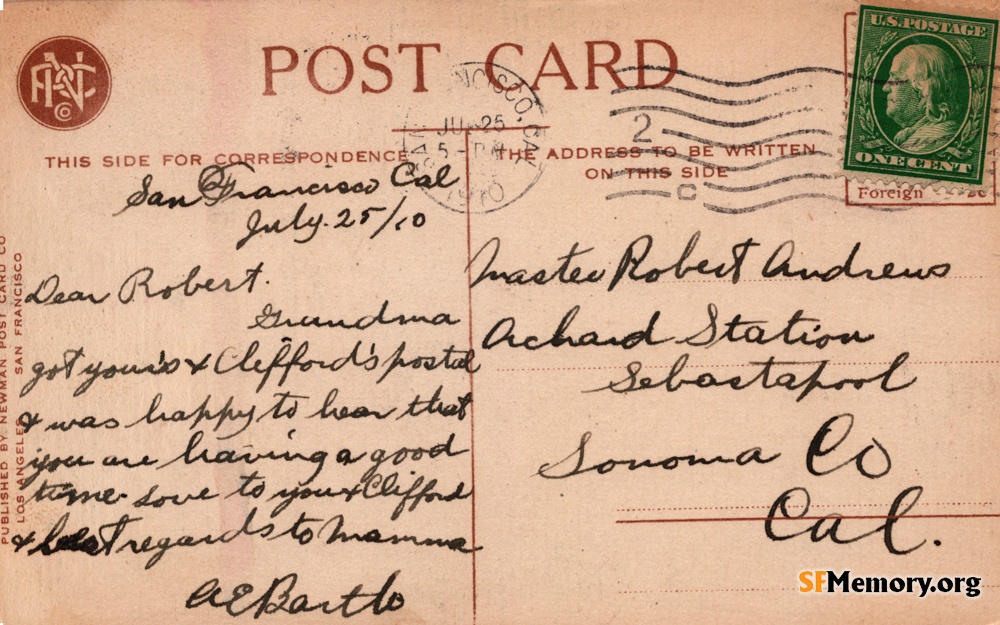 POST CARD
THIS SIDE FOR CORRESPONDENCE
THE ADDRESS TO BE WRITTEN
ON THIS SIDE
U.S. POSTAGE
ONE CENT
Foreign 2c
SAN FRANCISCO, CAL
JUL 25
5 - PM
1910
2
C
San Francisco Cal
July. 25/10
Dear Robert.
Grandma
got yours & Clefford's postal
& was happy to hear that
you are having a good
time. Love to you & Clifford
& best regards to Mamma
A E Bartlo
Master Robert Andrews
Archard Station
Sebastapool
Sonoma Co
Cal.
PUBLISHED BY NEWMAN POST CARD CO
LOS ANGELES SAN FRANCISCO
SFMemory.org